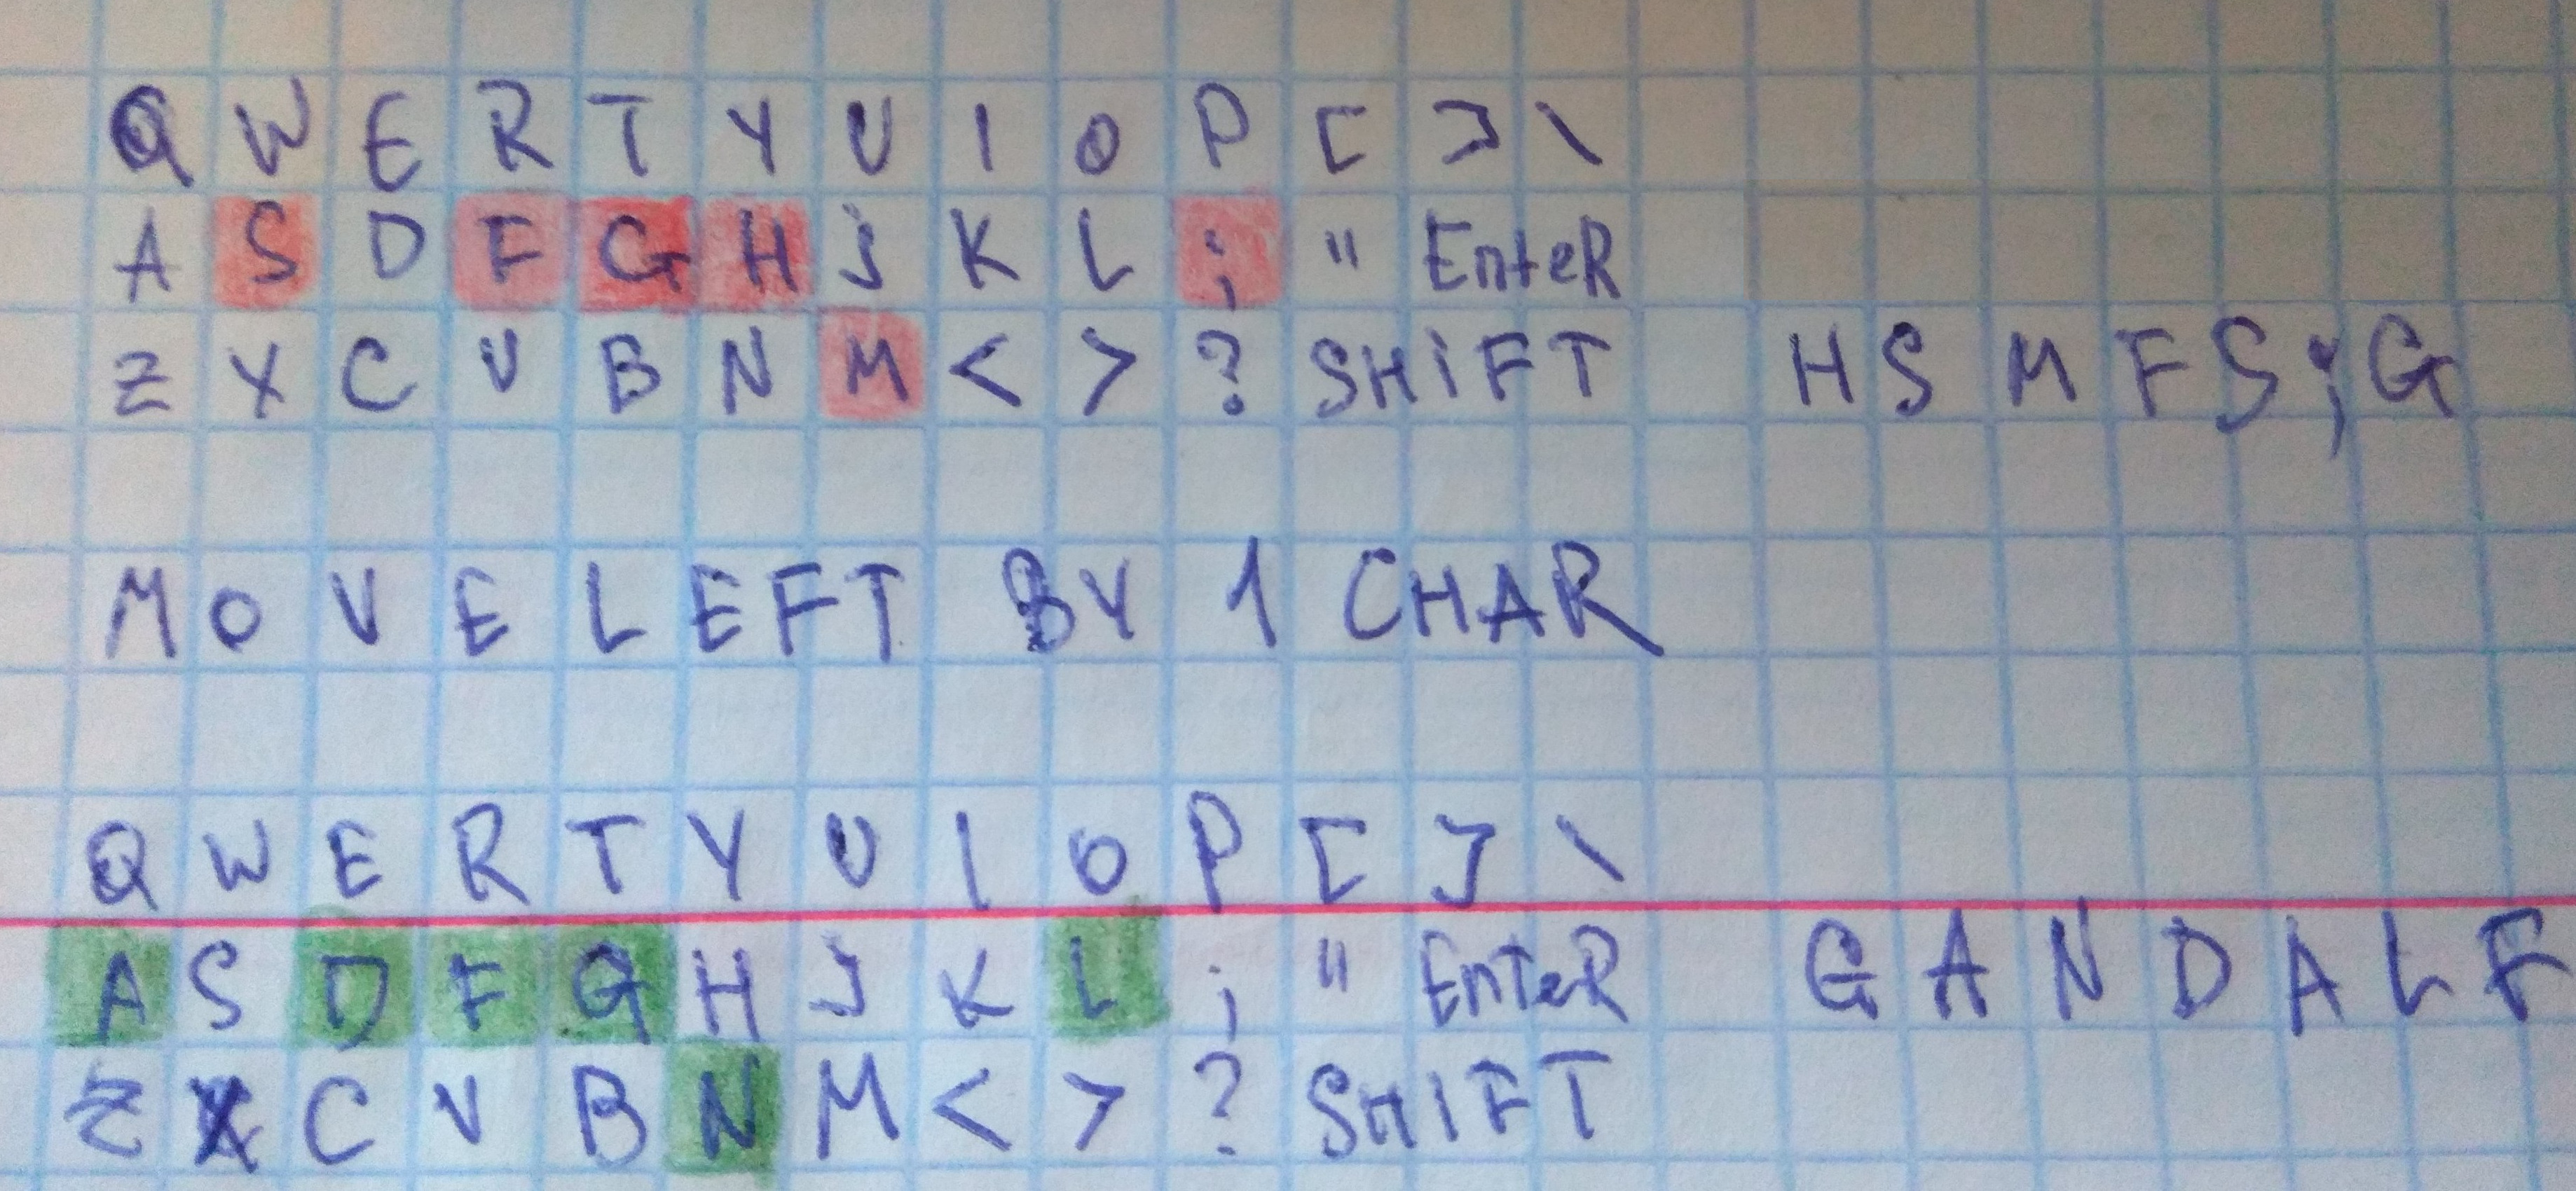 Q W E R T Y U I O P [ ] \
A S D F G H J K L ; " EnteR
Z X C V B N M < > ? SHiFT H S M F S ; G
MOVE LEFT BY 1 CHAR
Q W E R T Y U I O P [ ] \
A S D F G H J K L ; " EnTeR G A N D A L F
Z X C V B N M < > ? SHIFT